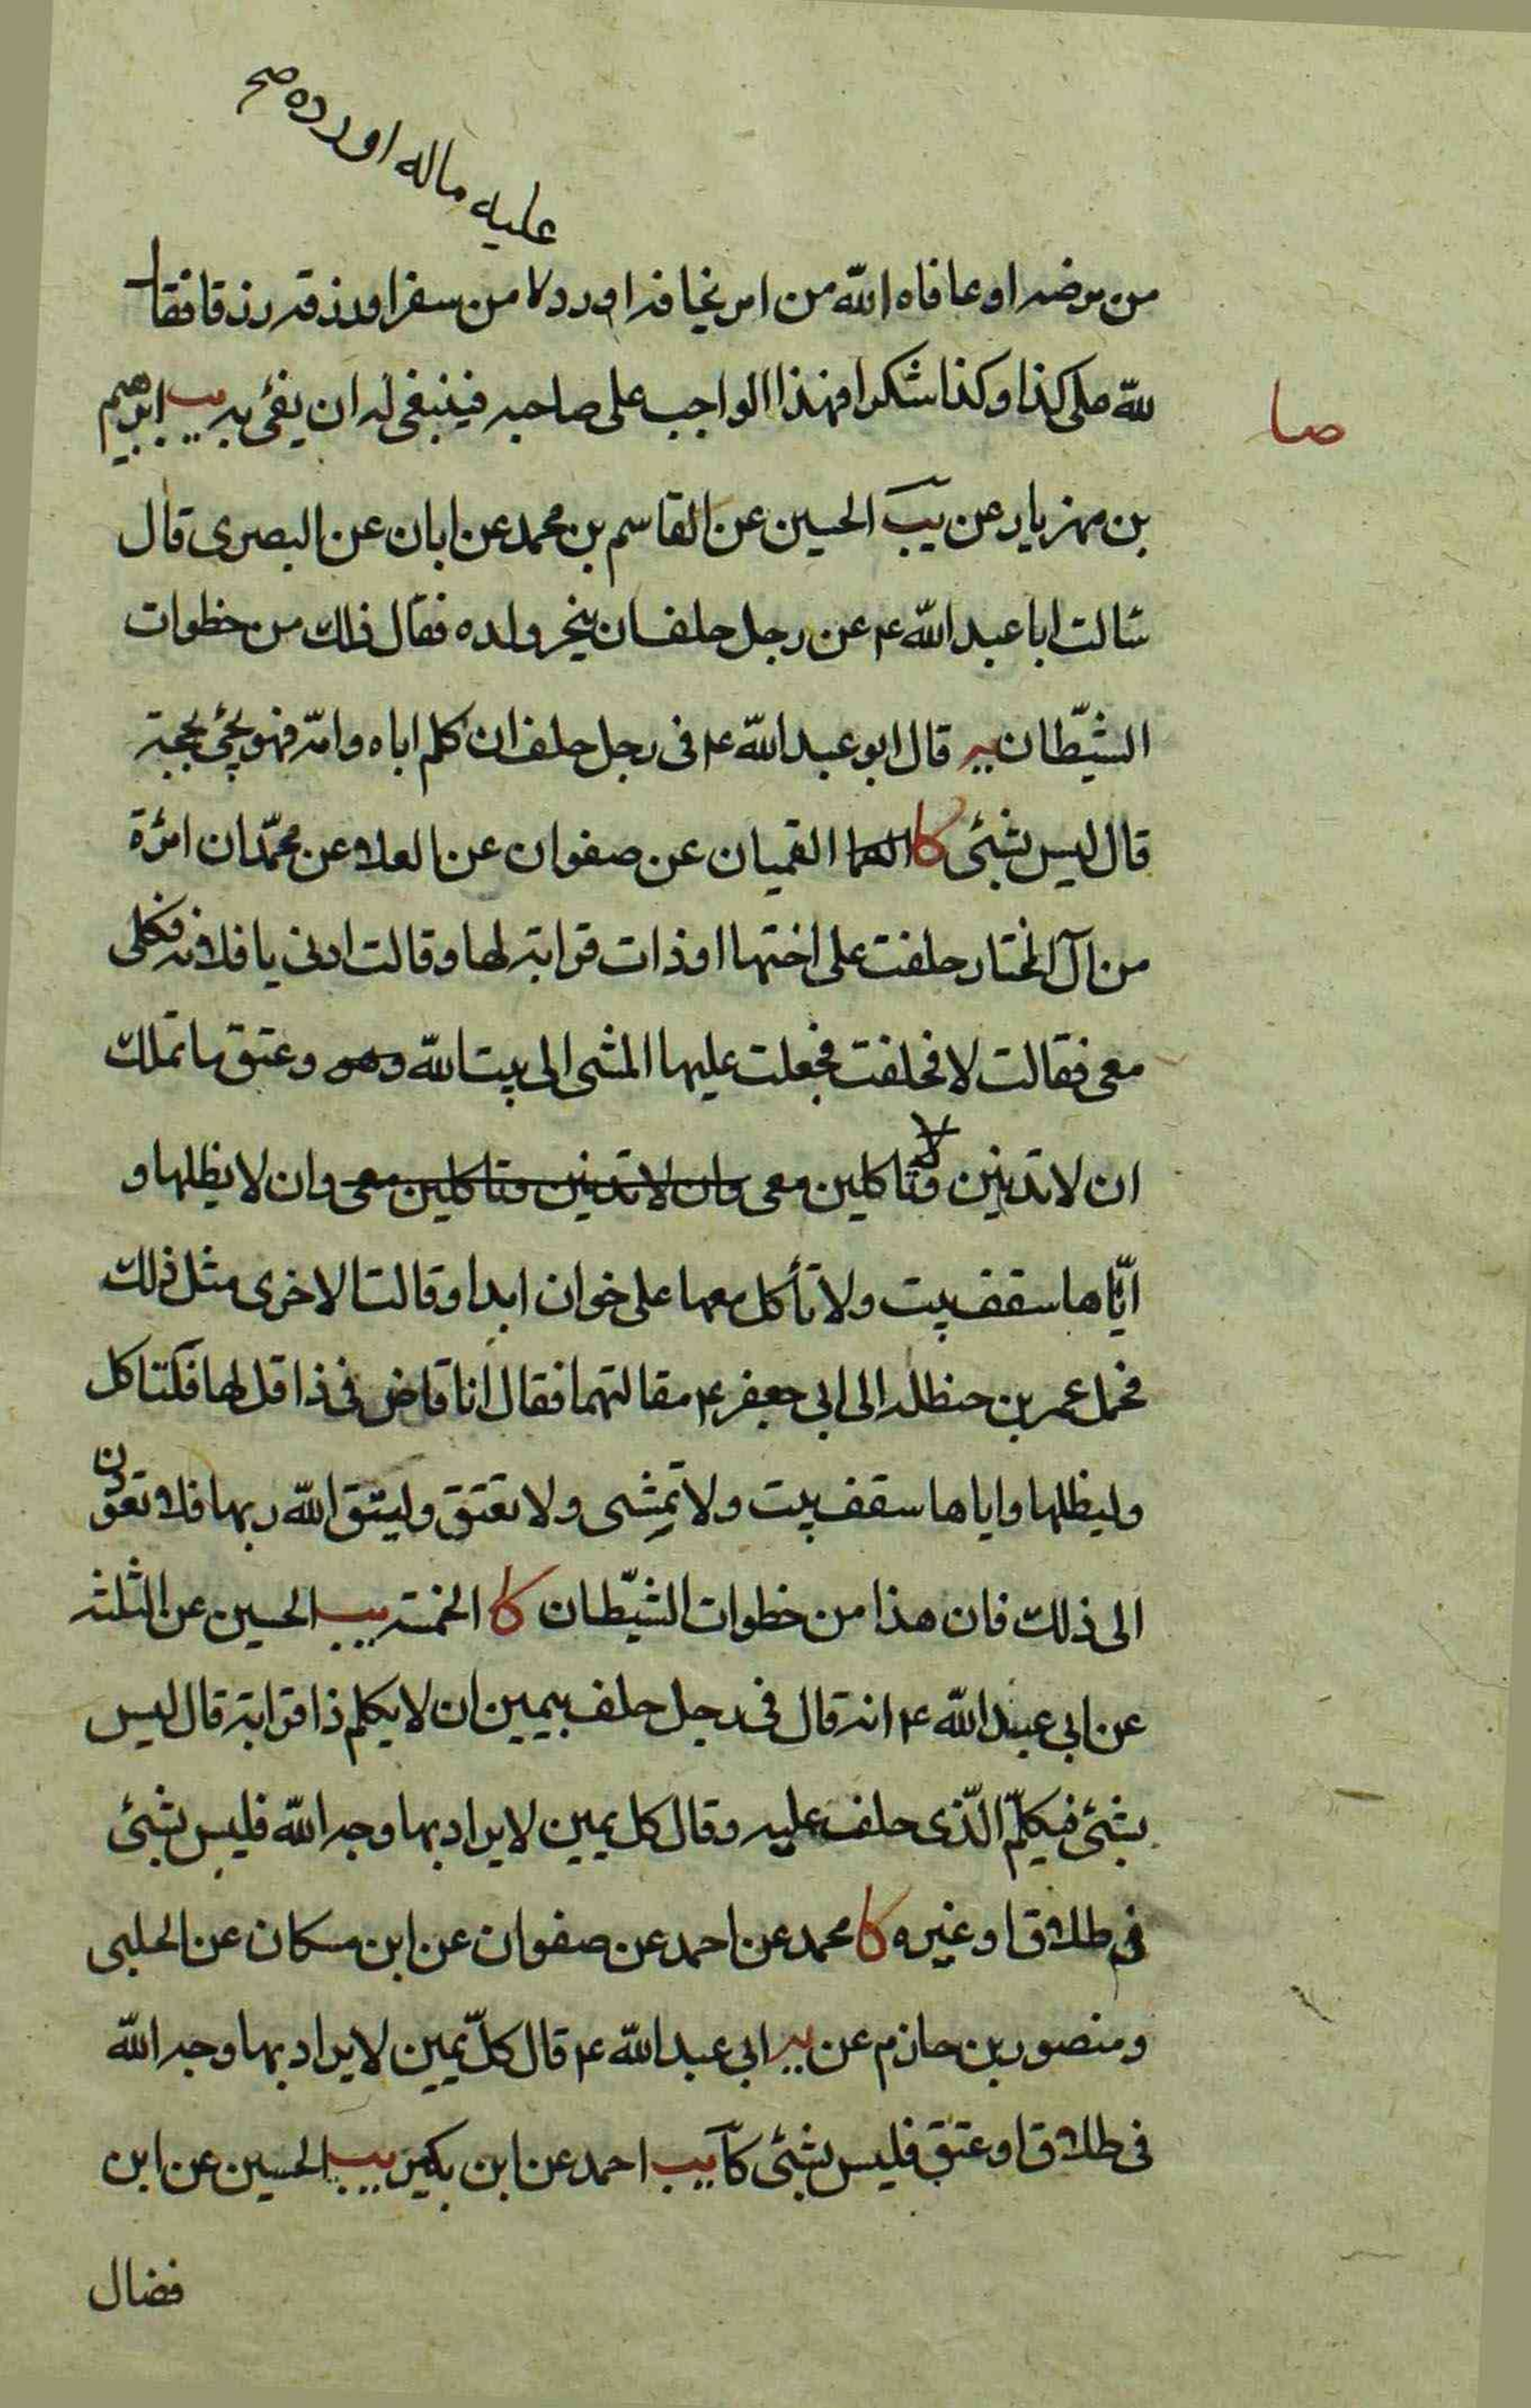 عليه ماله اورده صح
من مرضه او عافاه الله من امر يخافه او رد من سفر او رزقه رزقا فقال
لله على كذا وكذا شكرا فهذا الواجب على صاحبه فينبغى له ان يفئ به يب ابرهيم
صا
بن مهزيار عن يب الحسين عن القاسم بن محمد عن ابان عن البصرى قال
سالت ابا عبد الله ع عن رجل حلف ان ينحر ولده فقال ذلك من خطوات
الشيّطان يه قال ابو عبد الله ع فى رجل حلف ان كلم اباه وامّه فهو بحجة
قال ليس بشئى كا القميان عن صفوان عن العلا عن محمّد ان امرئة
من آل المختار حلفت على اختها او ذات قرابة لها وقالت ادنى يا فلانه فكلى
معى فقالت لا فحلفت فجعلت عليها المشى الى بيت الله وعتق ما تملك
ان لا تدنين ولا تاكلين معى وان لا تدنين وتاكلين معى وان لا يظلها و
ايّاها سقف بيت ولا تأكل معها على خوان ابدا وقالت الاخرى مثل ذلك
فحمل عمر بن حنظله الى ابى جعفر ع مقالتهما فقال انا قاض فى ذا قل لها فلتاكل
وليظلها واياها سقف بيت ولا تمشى ولا تعتق وليتق الله ربها فلا تعودن
الى ذلك فان هذا من خطوات الشيّطان كا الخمسة يب الحسين عن الثلثه
عن ابى عبد الله ع انه قال فى رجل حلف بيمين ان لا يكلم ذا قرابة قال ليس
بشئى فيكلّم الّذى حلف عليه وقال كل يمين لا يراد بها وجه الله فليس بشئى
فى طلاق او غيره كا محمد عن احمد عن صفوان عن ابن مسكان عن الحلبى
ومنصور بن حازم عن يه ابى عبد الله ع قال كلّ يمين لا يراد بها وجه الله
فى طلاق او عتق فليس بشئى كا يب احمد عن ابن بكير يب الحسين عن ابن
فضال